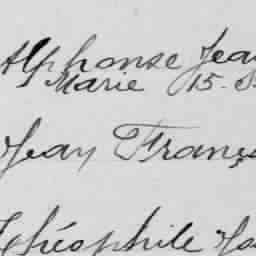 Alphonse Jean
Marie 15. S
Jean Franç
Théophile Ma